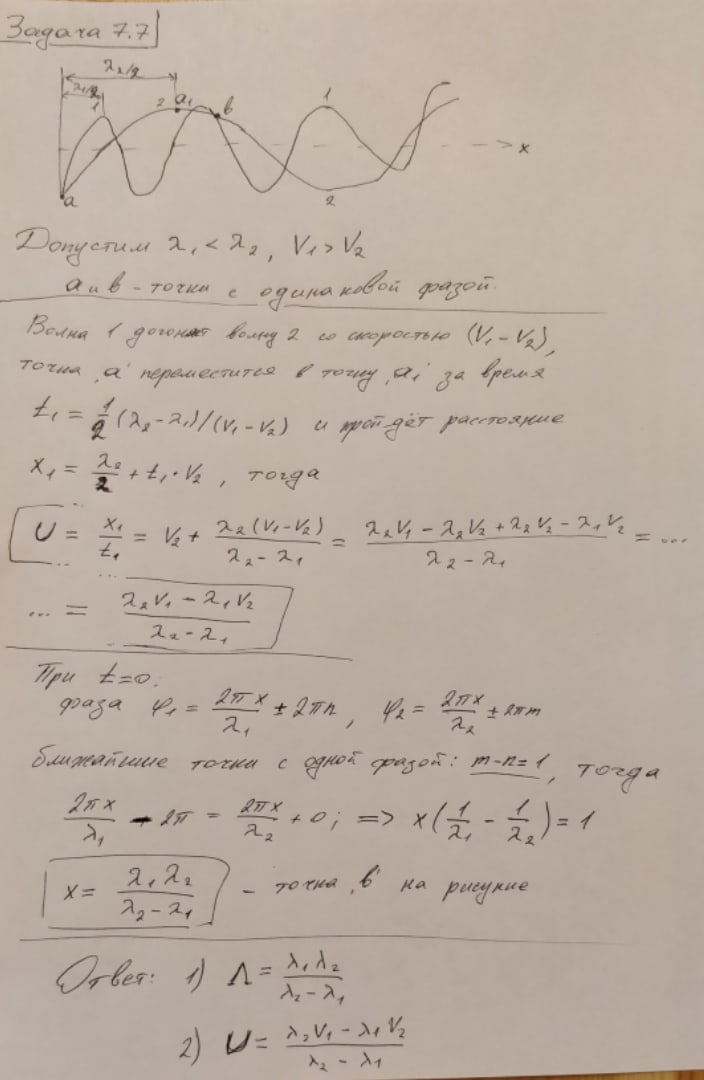 Задача 7.7
λ₂/2
λ₁/2
1 2 a₁ b 1
x
a 2
Допустим λ₁ < λ₂, V₁ > V₂
a и b - точки с одинаковой фазой.
Волна 1 догонят волну 2 со скоростью (V₁ - V₂),
точка „a" переместится в точку „a₁" за время
t₁ = 1/2 (λ₂ - λ₁)/(V₁ - V₂) и пройдёт расстояние
x₁ = λ₂/2 + t₁·V₂, тогда
U = x₁/t₁ = V₂ + λ₂(V₁-V₂)/(λ₂ - λ₁) = (λ₂V₁ - λ₂V₂ + λ₂V₂ - λ₁V₂)/(λ₂ - λ₁) = ...
... = (λ₂V₁ - λ₁V₂)/(λ₂ - λ₁)
При t=0:
фаза φ₁ = 2πx/λ₁ ± 2πn, φ₂ = 2πx/λ₂ ± 2πm
ближайшие точки с одной фазой: m-n=1, тогда
2πx/λ₁ - 2π = 2πx/λ₂ + 0; => x(1/λ₁ - 1/λ₂) = 1
x = λ₁λ₂/(λ₂ - λ₁) - точка „b" на рисунке
Ответ: 1) Λ = λ₁λ₂/(λ₂ - λ₁)
2) U = (λ₂V₁ - λ₁V₂)/(λ₂ - λ₁)